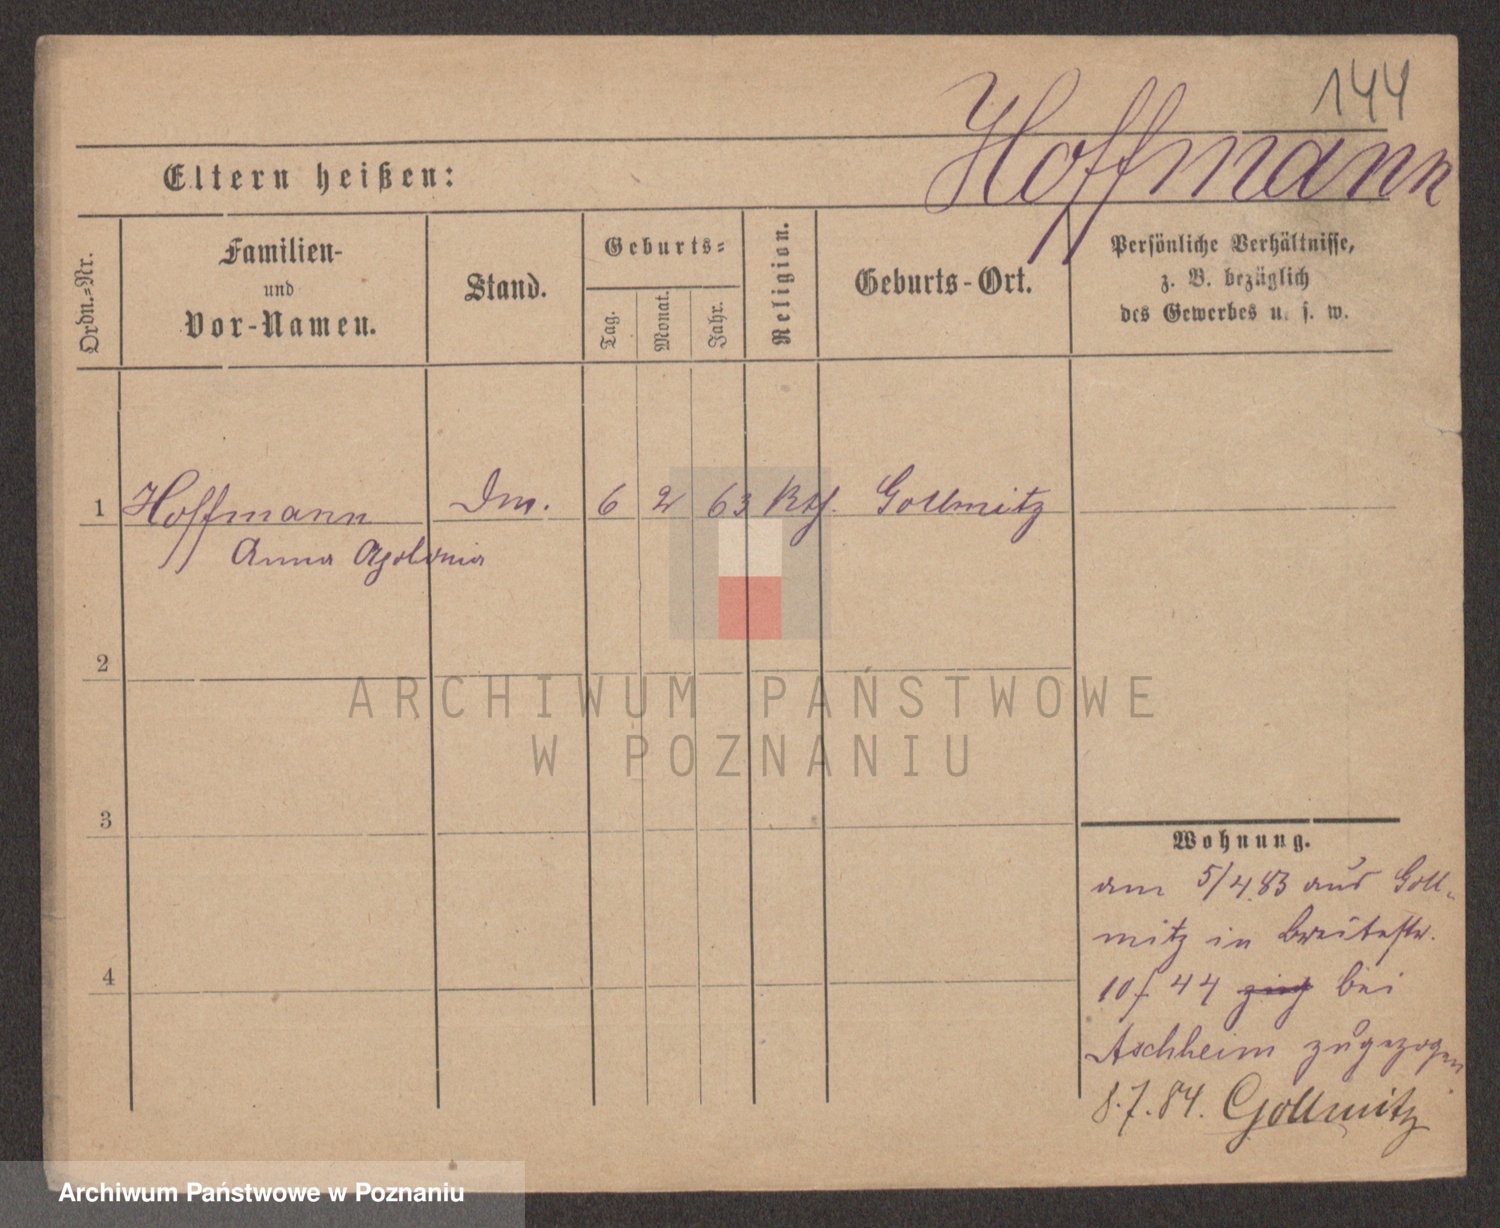 144
Hoffmann
Eltern heißen:
Ordn.-Nr.
Familien-
und
Vor-Namen.
Stand.
Geburts-
Tag.
Monat.
Jahr.
Religion.
Geburts-Ort.
Persönliche Verhältnisse,
z. B. bezüglich
des Gewerbes u. s. w.
1 Hoffmann 6 2 63 Kth. Gollmitz
Anna Apolonia
2
3
4
Wohnung.
am 5/4 83 aus Goll-
mitz in Breitestr.
44 bei
Aschheim zugezogen
8.7.84. Gollmitz
ARCHIWUM PAŃSTWOWE
W POZNANIU
Archiwum Państwowe w Poznaniu